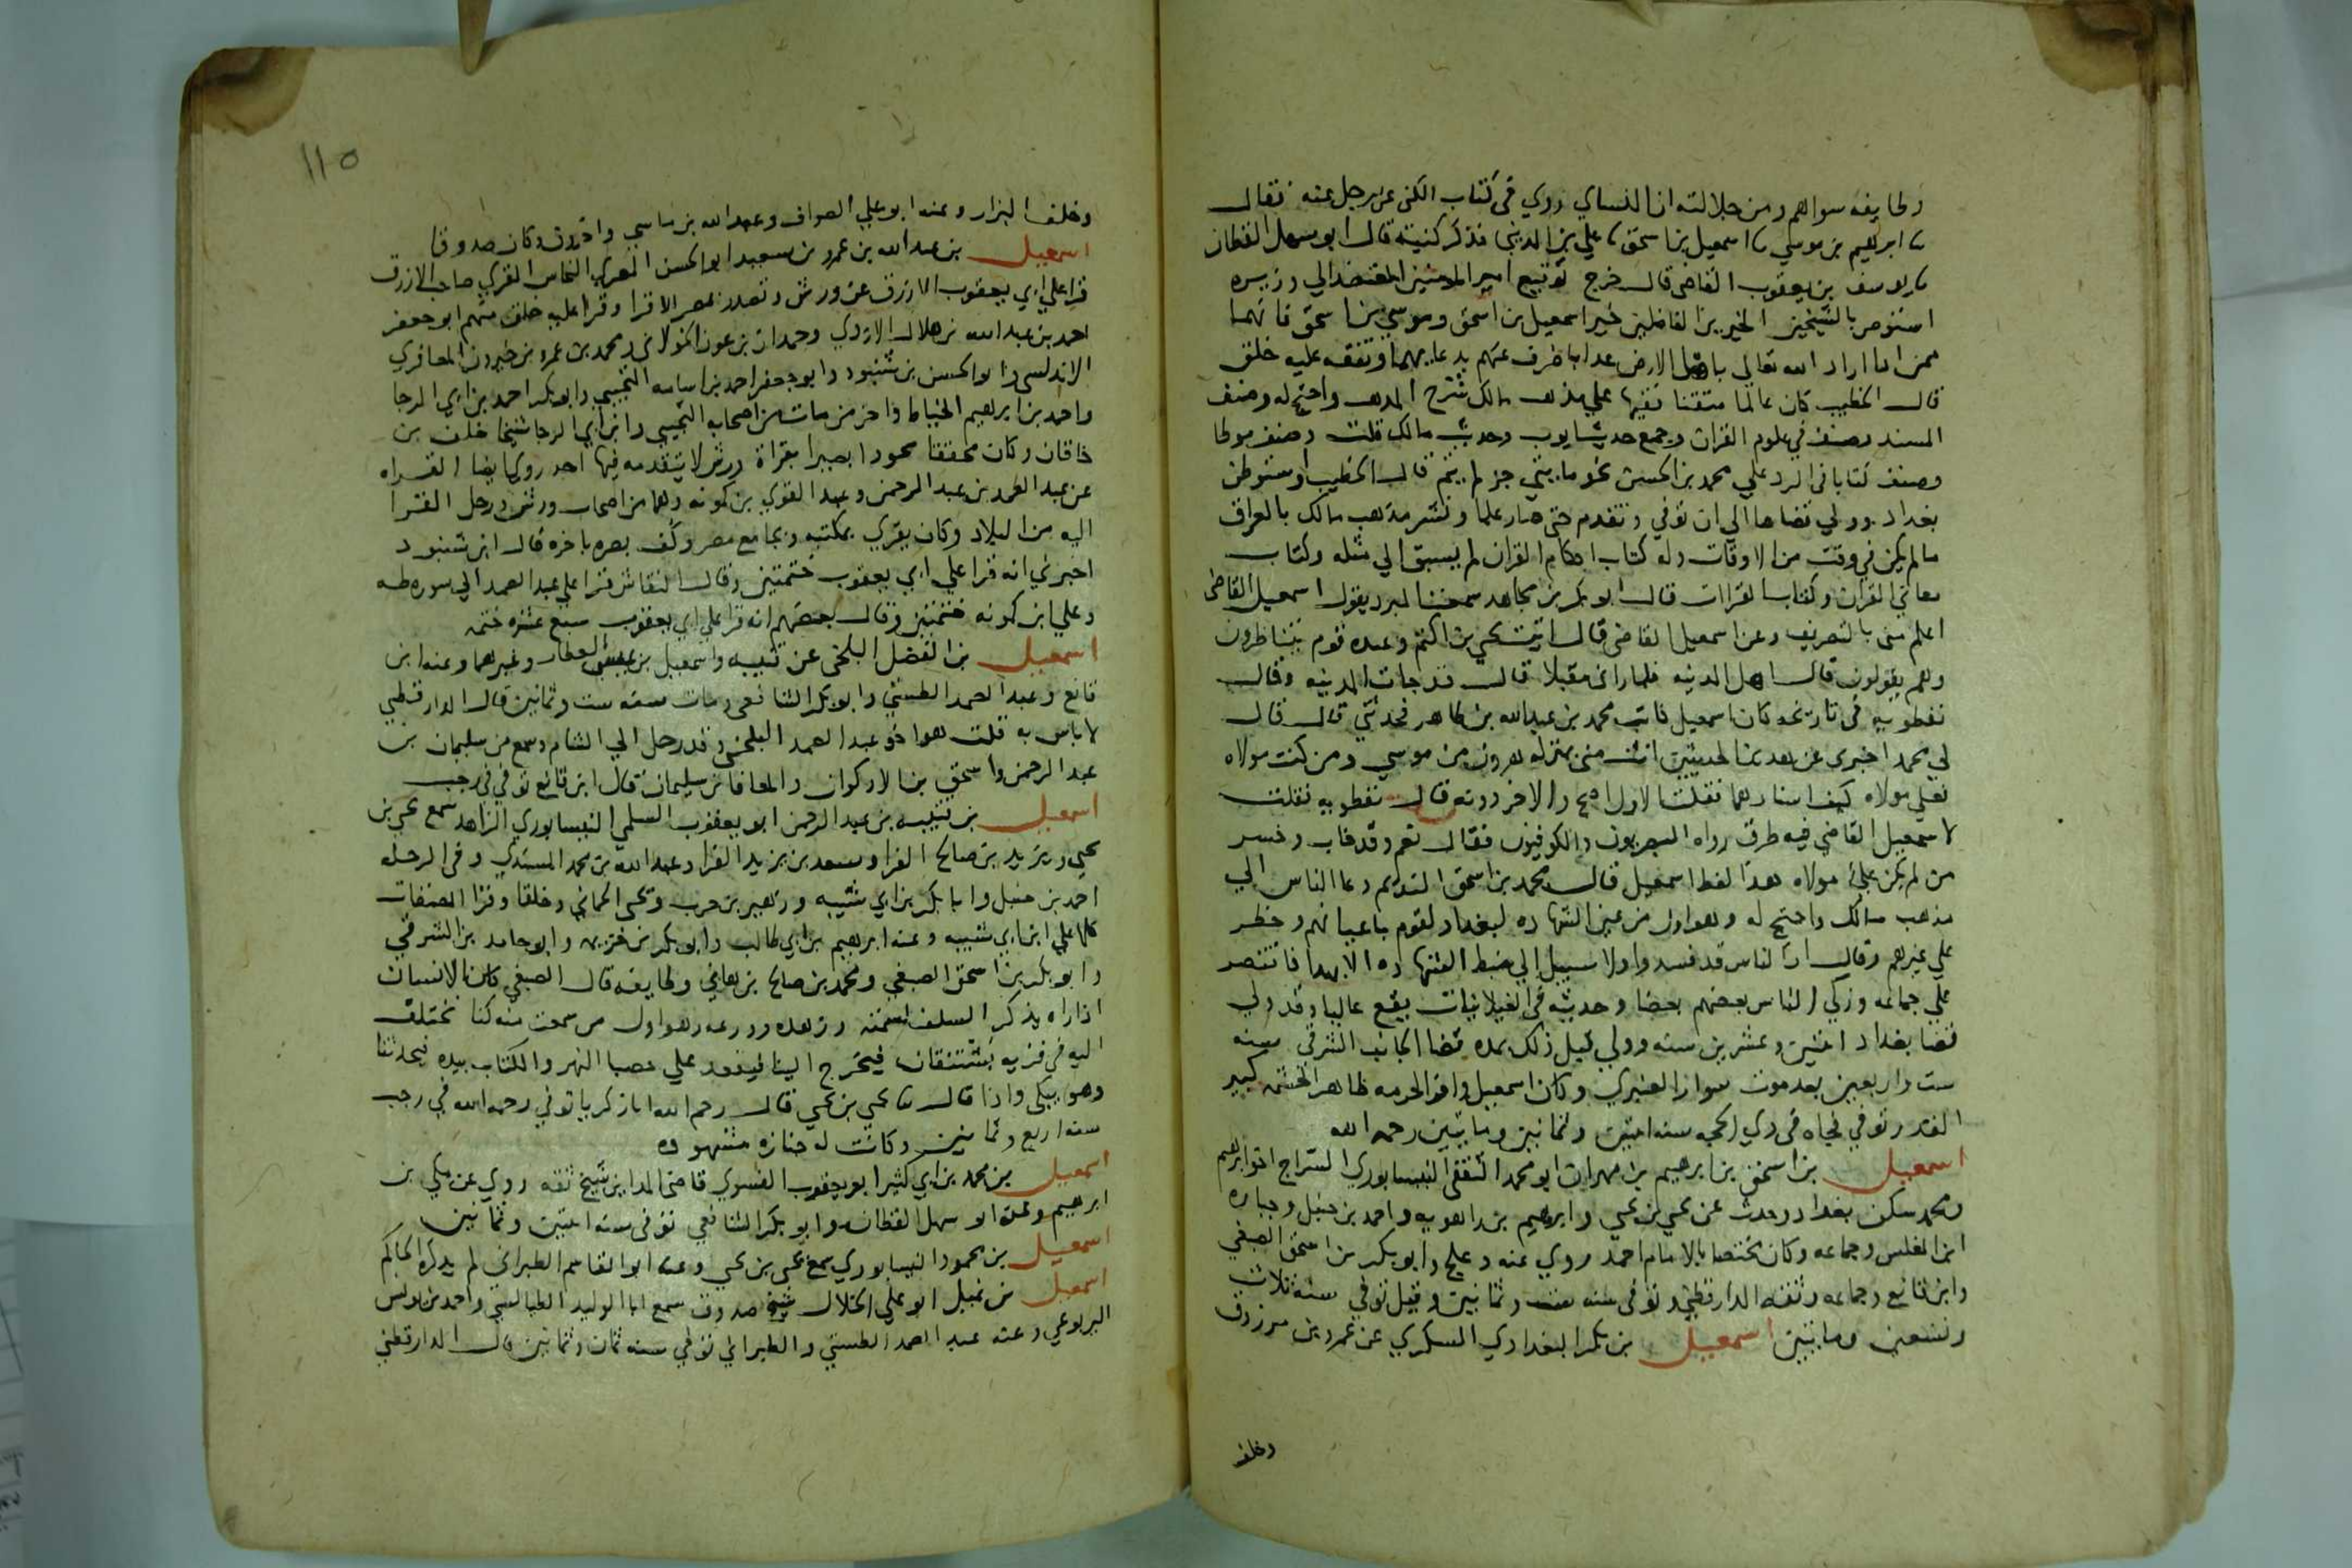 وطايفه سواهم ومن جلالته ان النساي روي في كتاب الكنى عن رجل عنه فقال
ابرهيم بن موسي اسمعيل بن اسحق علي بن المديني فذكر كنيته قال ابو سهل القطان
يوسف بن يعقوب القاضي قال خرج توقيع امير المومنين المعتضد الي وزيره
استوص بالشيخين الخيرين الفاضلين خيرا اسمعيل بن اسحق وموسي بن اسحق فانهما
ممن اذا اراد الله تعالي باهل الارض عذابا صرف عنهم بدعايهما وتفقه عليه خلق
قال الخطيب كان عالما متقنا فقيها علي مذهب مالك شرح المذهب واحتج له وصنف
المسند وصنف في علوم القران وجمع حديث ايوب وحديث مالك قلت وصنف موطا
وصنف كتابا في الرد علي محمد بن الحسن نحو مايتي جز لم يتم قال الخطيب استوطن
بغداد وولي قضاها الي ان توفي وتقدم حتي صار علما ونشر مذهب مالك بالعراق
ما لم يكن في وقت من الاوقات وله كتاب احكام القران لم يسبق الي مثله وكتاب
معاني القران وكتاب القراات قال ابو بكر بن مجاهد سمعت المبرد يقول اسمعيل القاضي
اعلم مني بالتصريف وعن اسمعيل القاضي قال اتيت يحيي بن اكثم وعنده قوم يتناظرون
وهم يقولون قال اهل المدينه فلما راني مقبلا قال قد جات المدينه وقال
نفطويه في تاريخه كان اسمعيل كاتب محمد بن عبد الله بن طاهر فحدثني قال قال
لي محمد اخبرني عن هذين الحديثين انت مني بمنزله هرون من موسي ومن كنت مولاه
فعلي مولاه كيف اسنادهما فقلت الاول اصح والاخر دونه قال نفطويه فقلت
لاسمعيل القاضي فيه طرق رواه البصريون والكوفيون فقال نعم وقد خاب وخسر
من لم يكن علي مولاه هذا لفظ اسمعيل قال محمد بن اسحق النديم دعا الناس الي
مذهب مالك واحتج له وهو اول من عين الشهاده ببغداد لقوم باعيانهم وحظر
علي غيرهم وقال ان الناس قد فسدوا ولا سبيل الي ضبط الشهاده الا بهذا فاقتصر
علي جماعه وزكي الناس بعضهم بعضا وحديثه في الغيلانيات يقع عاليا وقد ولي
قضا بغداد اثنتين وعشرين سنه وولي قبل ذلك بمده قضا الجانب الشرقي سنه
ست واربعين بعد موت سوار العنبري وكان اسمعيل وافر الحرمه ظاهر الحشمه كبير
القدر توفي فجاه في ذي الحجه سنه اثنتين وثمانين ومايتين رحمه الله
اسمعيل بن اسحق بن ابرهيم بن مهران ابو محمد الثقفي النيسابوري السراج اخو ابرهيم
ومحمد سكن بغداد وحدث عن يحيي بن يحيي وابرهيم بن راهويه واحمد بن حنبل وجباره
ابن المغلس وجماعه وكان مختصا بالامام احمد روي عنه دعلج وابو بكر بن اسحق الصبغي
وابن قانع وجماعه وثقه الدارقطني توفي سنه ست وثمانين وقيل توفي سنه ثلاث
وتسعين ومايتين اسمعيل بن بكر البغدادي السكري عن عمرو بن مرزوق
وخلف
١١٥
وخلف البزار وعنه ابو علي الصواف وعبد الله بن ماسي واخرون وكان صدوقا
اسمعيل بن عبد الله بن عمرو بن سعيد ابو الحسن المصري النحاس المقري صاحب الازرق
قرا علي ابي يعقوب الازرق عن ورش وتصدر بمصر للاقرا وقرا عليه خلق منهم ابو جعفر
احمد بن عبد الله بن هلال الازدي وحمدان بن عون الخولاني ومحمد بن عمرو بن خيرون المعافري
الاندلسي وابو الحسن بن شنبوذ وابو جعفر احمد بن اسامه التجيبي وابو بكر احمد بن ابي الرجا
واحمد بن ابرهيم الخياط واخر من مات من اصحابه التجيبي وابن ابي الرجا شيخا خلف بن
خاقان وكان محققا مجودا بصيرا بقراة ورش لا يتقدمه فيها احد روي ايضا القراه
عن عبد الصمد بن عبد الرحمن وعبد القوي بن كمونه وهما من اصحاب ورش ورحل القرا
اليه من البلاد وكان يقري بمكتبه وبجامع مصر وكف بصره باخره قال ابن شنبوذ
اخبرني انه قرا علي ابي يعقوب ختمتين وقال النقاش قرا علي عبد الصمد الي سوره طه
وعلي ابن كمونه ختمتين وقال بعضهم انه قرا علي ابي يعقوب سبع عشره ختمه
اسمعيل بن الفضل البلخي عن قتيبه واسمعيل بن عيسي العطار وغيرهما وعنه ابن
قانع وعبد الصمد الطستي وابو بكر الشافعي ومات سنه ست وثمانين قال الدارقطني
لا باس به قلت هو اخو عبد الصمد البلخي وقد رحل الي الشام وسمع من سليمان بن
عبد الرحمن واسحق بن الاركوان والمعافا بن سليمان قال ابن قانع توفي في رجب
اسمعيل بن قتيبه بن عبد الرحمن ابو يعقوب السلمي النيسابوري الزاهد سمع يحيي بن
يحيي ويزيد بن صالح الفرا وسعد بن يزيد الفرا وعبد الله بن محمد المسندي وفي الرحله
احمد بن حنبل وابا بكر بن ابي شيبه وزهير بن حرب ويحيي الحماني وخلقا وقرا المصنفات
كلها علي ابن ابي شيبه وعنه ابرهيم بن ابي طالب وابو بكر بن خزيمه وابو حامد بن الشرقي
وابو بكر بن اسحق الصبغي ومحمد بن صالح بن هاني وطايفه قال الصبغي كان الانسان
اذا راه يذكر السلف لسمته وزهده وورعه وهو اول من سمعت منه كنا نختلف
اليه في قريه بشتنقان فيخرج الينا فيقعد علي حصبا النهر والكتاب بيده فيحدثنا
وهو يبكي واذا قال يحيي بن يحيي قال رحم الله ابا زكريا توفي رحمه الله في رجب
سنه اربع وثمانين وكانت له جنازه مشهوده
اسمعيل بن محمد بن ابي كثير ابو يعقوب الفسوي قاضي المداين شيخ ثقه روي عن مكي بن
ابرهيم وعنه ابو سهل القطان وابو بكر الشافعي توفي سنه اثنتين وثمانين
اسمعيل بن محمود النيسابوري سمع يحيي بن يحيي وعنه ابو القاسم الطبراني لم يذكره الحاكم
اسمعيل بن نميل ابو علي الخلال شيخ صدوق سمع ابا الوليد الطيالسي واحمد بن يونس
اليربوعي وعنه عبد الصمد الطستي والطبراني توفي سنه ثمان وثمانين قال الدارقطني